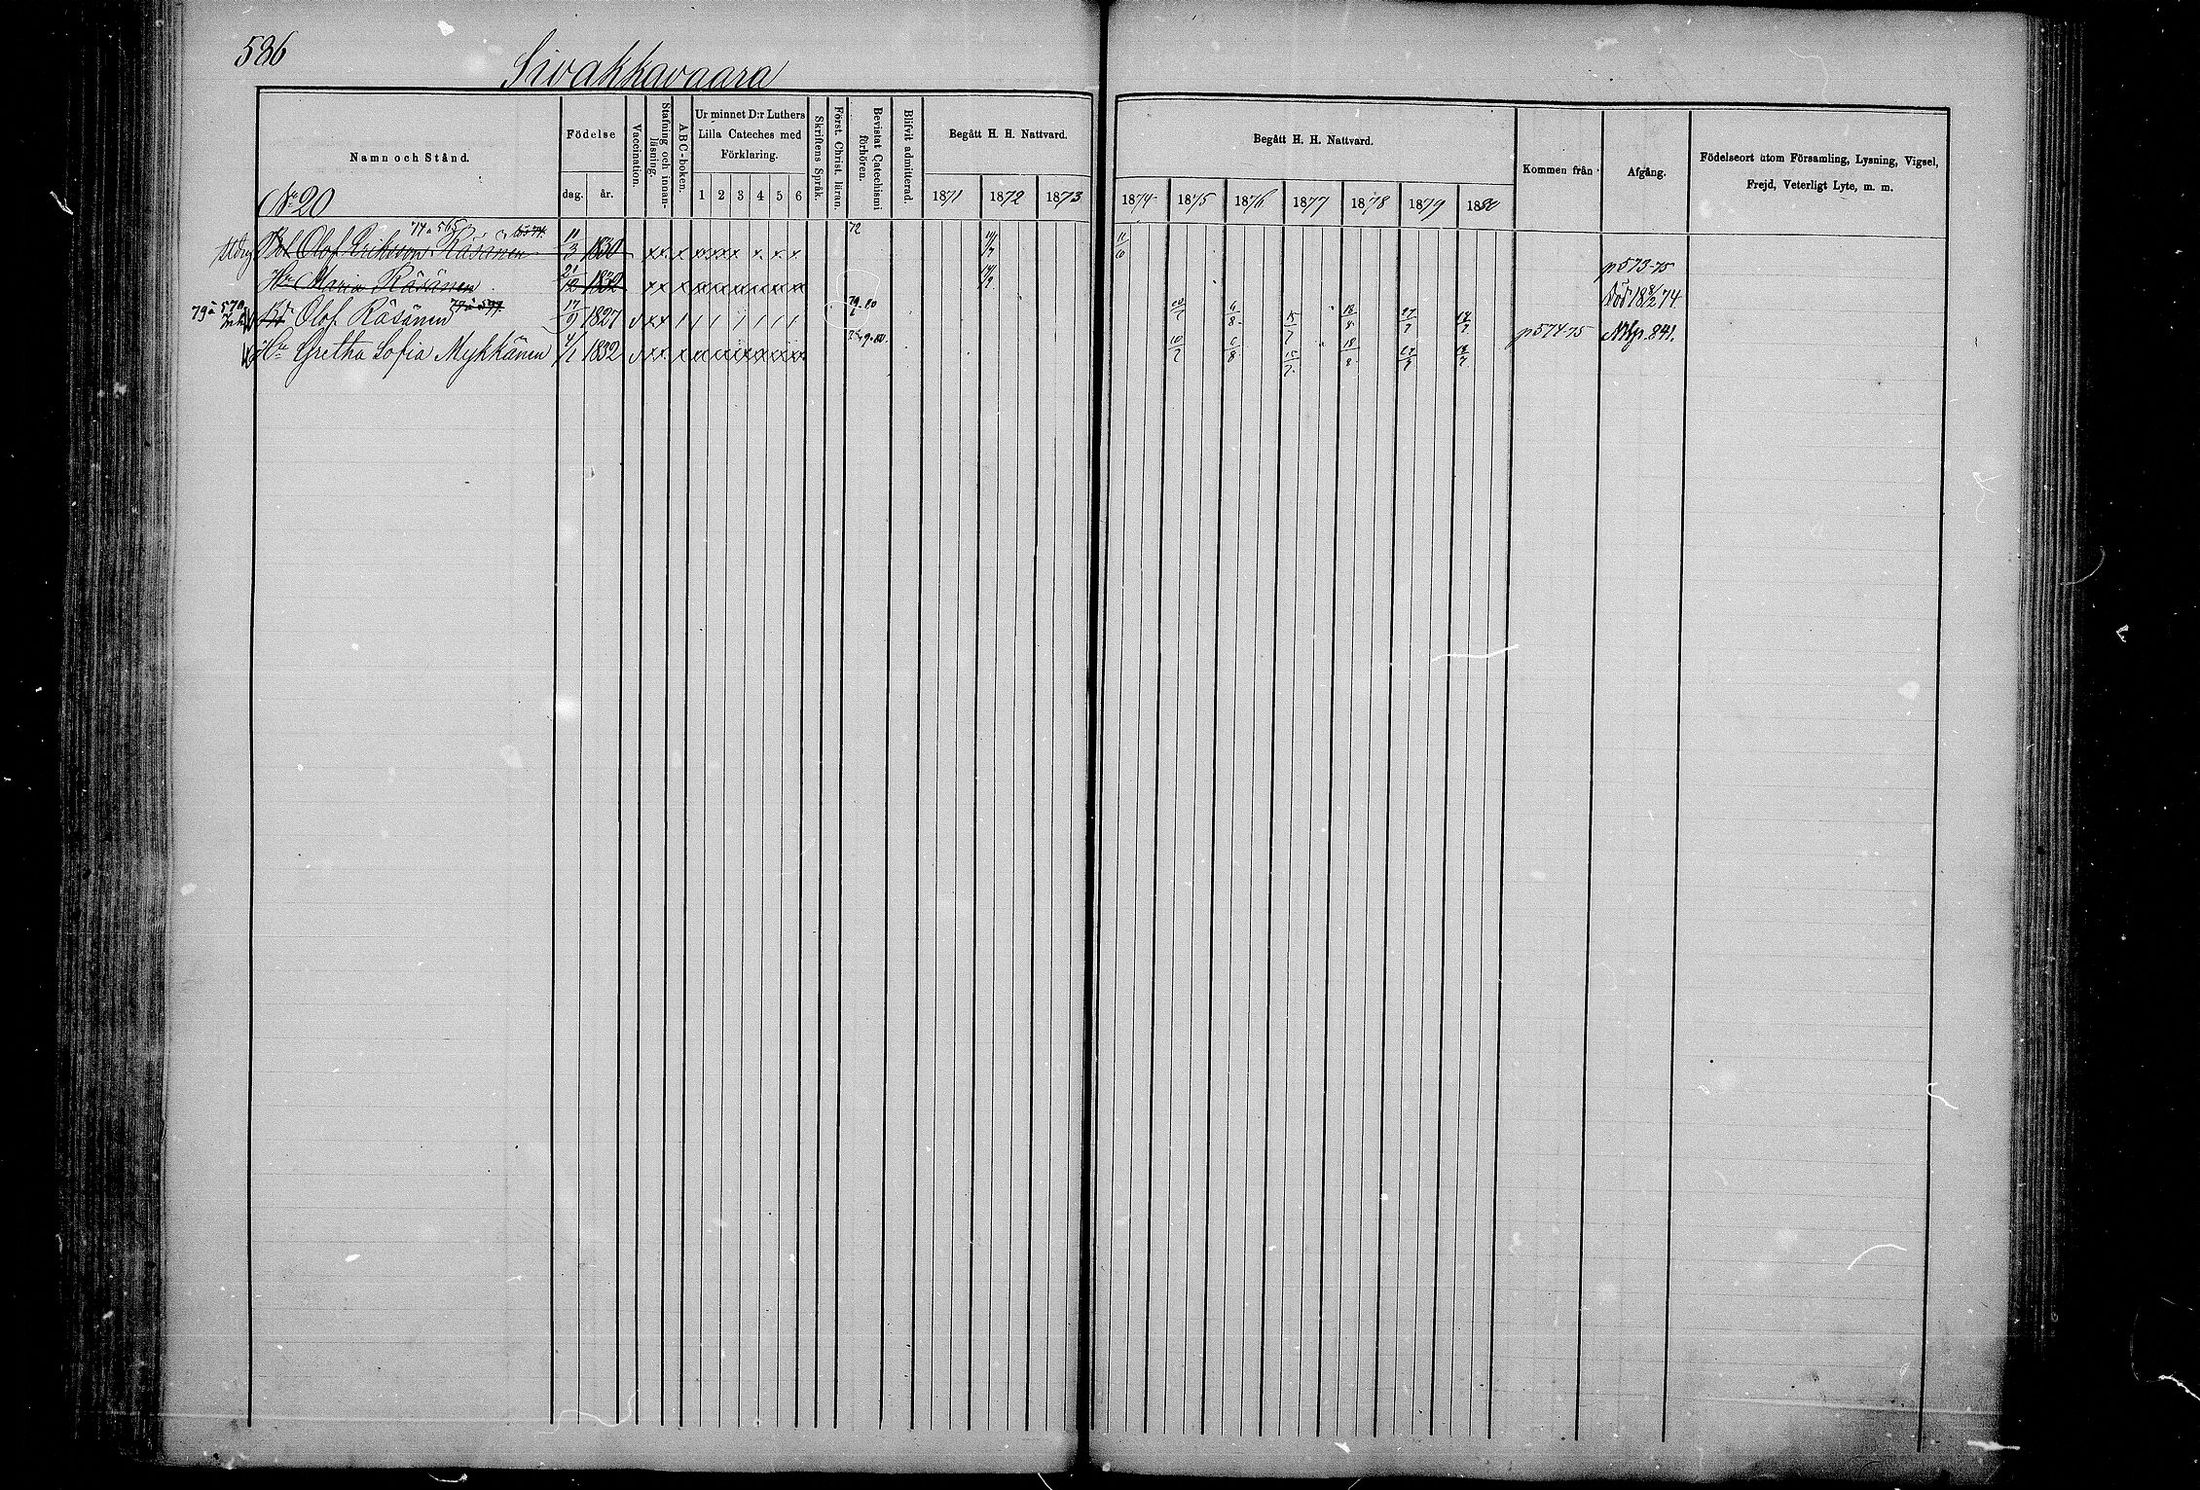 586
Sivakkavaara
Namn och Stånd.
Födelse
dag.
år.
Vaccination.
Stafning och innan-läsning.
A B C-boken.
Ur minnet D:r Luthers
Lilla Cateches med
Förklaring.
1 2 3 4 5 6
Skriftens Språk.
Först. Christ. läran.
Bevistat Catechismi förhören.
Blifvit admitterad.
Begått H. H. Nattvard.
1871 1872 1873
Begått H. H. Nattvard.
1874 1875 1876 1877 1878 1879 1880
Kommen från
Afgång.
Födelseort utom Församling, Lysning, Vigsel,
Frejd, Veterligt Lyte, m. m.
No 20
77 a 565
Olof Eriksson Räsänen 11/3 1830 72 11/10 p 573-75
Hu Maria Räsänen 21/12 1832 död 18 8/2 74
79 a 579
Olof Räsänen 17/9 1827 79-80 p 574-75 Nhp. 841.
Hu Gretha Sofia Mykkänen 4/1 1832